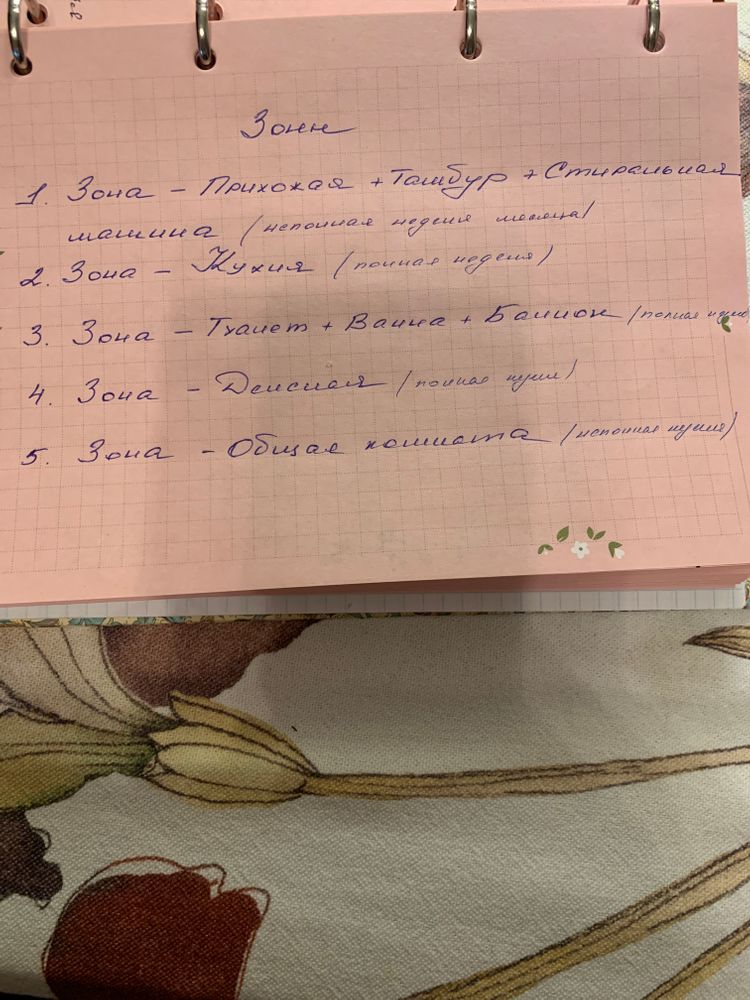 Зоны
1. Зона – Прихожая + Тамбур + Стиральная
машина (неполная неделя месяца)
2. Зона – Кухня (полная неделя)
3. Зона – Туалет + Ванна + Балкон (полная
4. Зона – Детская (полная неделя)
5. Зона – Общая комната (неполная неделя)